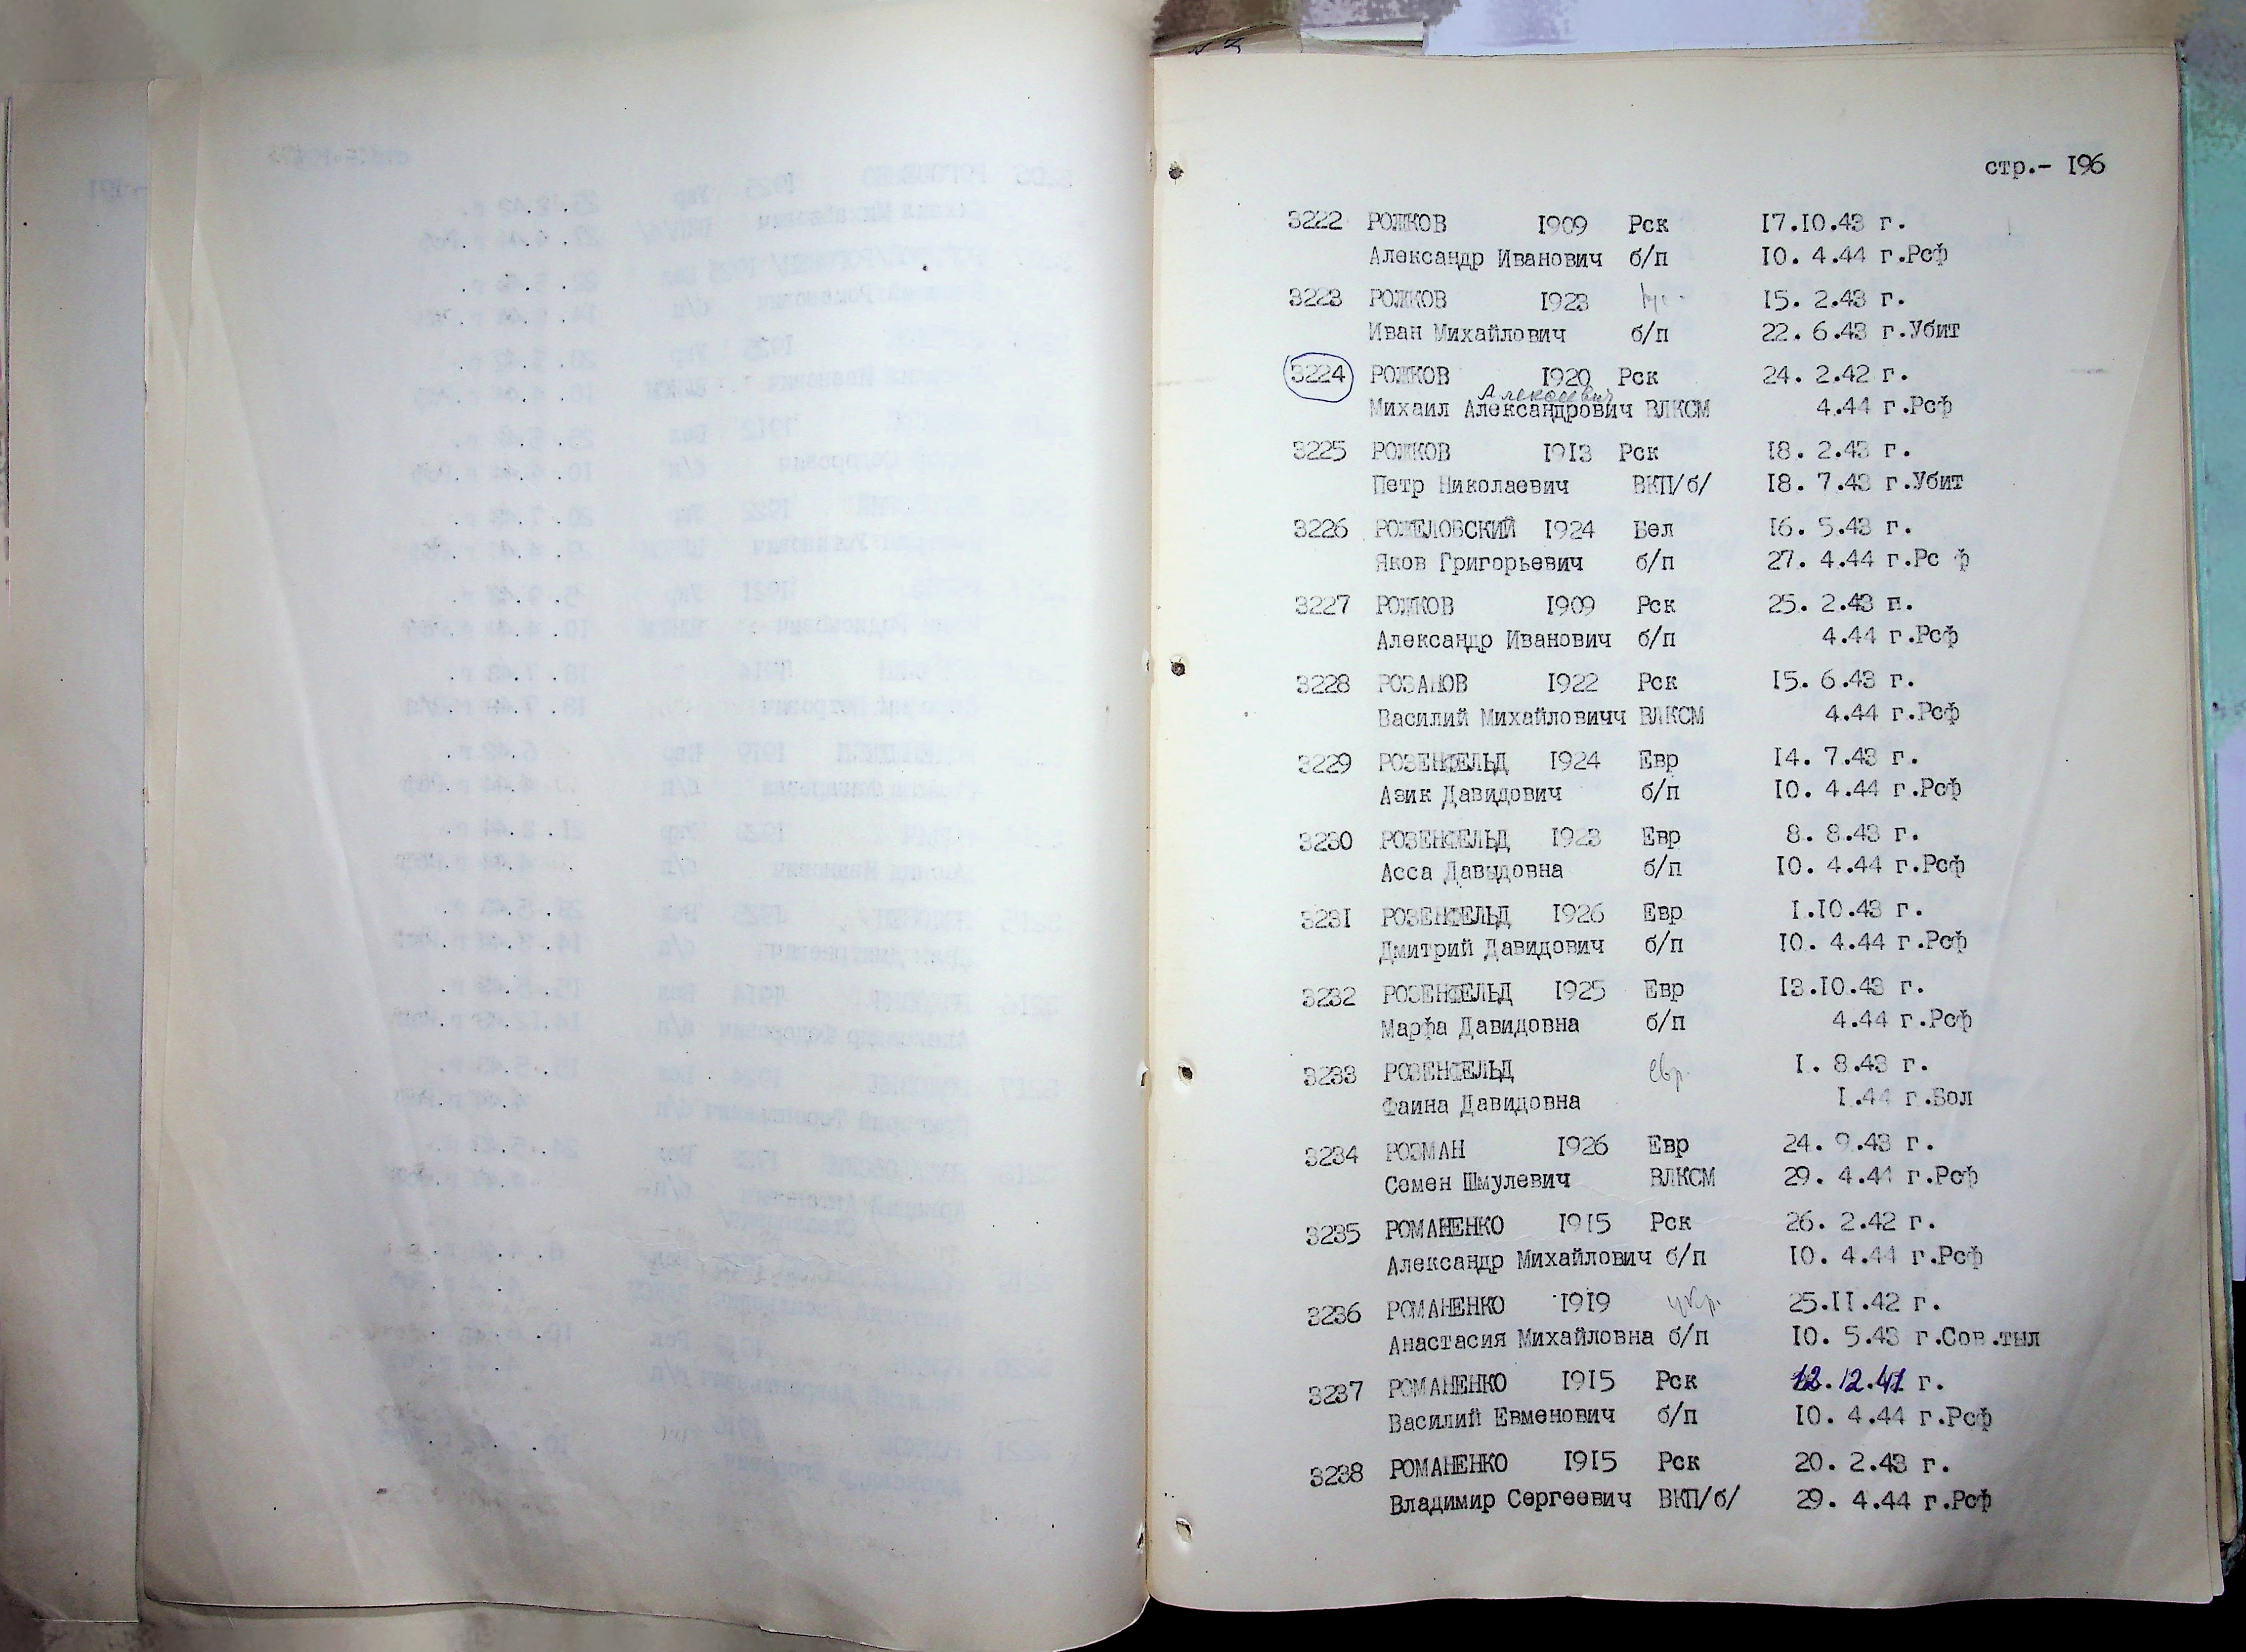 стр.- I96
3222 РОЖКОВ I909 Рск I7.I0.43 г.
Александр Иванович б/п I0. 4.44 г.Рсф
3223 РОЖКОВ I923 I5. 2.43 г.
Иван Михайлович б/п 22. 6.43 г.Убит
3224 РОЖКОВ I920 Рск 24. 2.42 г.
Алексеевич
Михаил Александрович ВЛКСМ 4.44 г.Рсф
3225 РОЖКОВ I9I3 Рск I8. 2.43 г.
Петр Николаевич ВКП/б/ I8. 7.43 г.Убит
3226 РОЖЕЛОВСКИЙ I924 Бел I6. 5.43 г.
Яков Григорьевич б/п 27. 4.44 г.Рс ф
3227 РОЖКОВ I909 Рск 25. 2.43 г.
Александр Иванович б/п 4.44 г.Рсф
3228 РОЗАНОВ I922 Рск I5. 6.43 г.
Василий Михайловичч ВЛКСМ 4.44 г.Рсф
3229 РОЗЕНФЕЛЬД I924 Евр I4. 7.43 г.
Азик Давидович б/п I0. 4.44 г.Рсф
3230 РОЗЕНФЕЛЬД I923 Евр 8. 8.43 г.
Асса Давыдовна б/п I0. 4.44 г.Рсф
3231 РОЗЕНФЕЛЬД I926 Евр I.I0.43 г.
Дмитрий Давидович б/п I0. 4.44 г.Рсф
3232 РОЗЕНФЕЛЬД I925 Евр I3.I0.43 г.
Марфа Давидовна б/п 4.44 г.Рсф
3233 РОЗЕНФЕЛЬД евр. I. 8.43 г.
Фаина Давидовна I.44 г.Бол
3234 РОЗМАН I926 Евр 24. 9.43 г.
Семен Шмулевич ВЛКСМ 29. 4.44 г.Рсф
3235 РОМАНЕНКО I9I5 Рск 26. 2.42 г.
Александр Михайлович б/п I0. 4.44 г.Рсф
3236 РОМАНЕНКО I9I9 укр. 25.II.42 г.
Анастасия Михайловна б/п I0. 5.43 г.Сов.тыл
3237 РОМАНЕНКО I9I5 Рск 12.12.41 г.
Василий Евменович б/п I0. 4.44 г.Рсф
3238 РОМАНЕНКО I9I5 Рск 20. 2.43 г.
Владимир Сергеевич ВКП/б/ 29. 4.44 г.Рсф